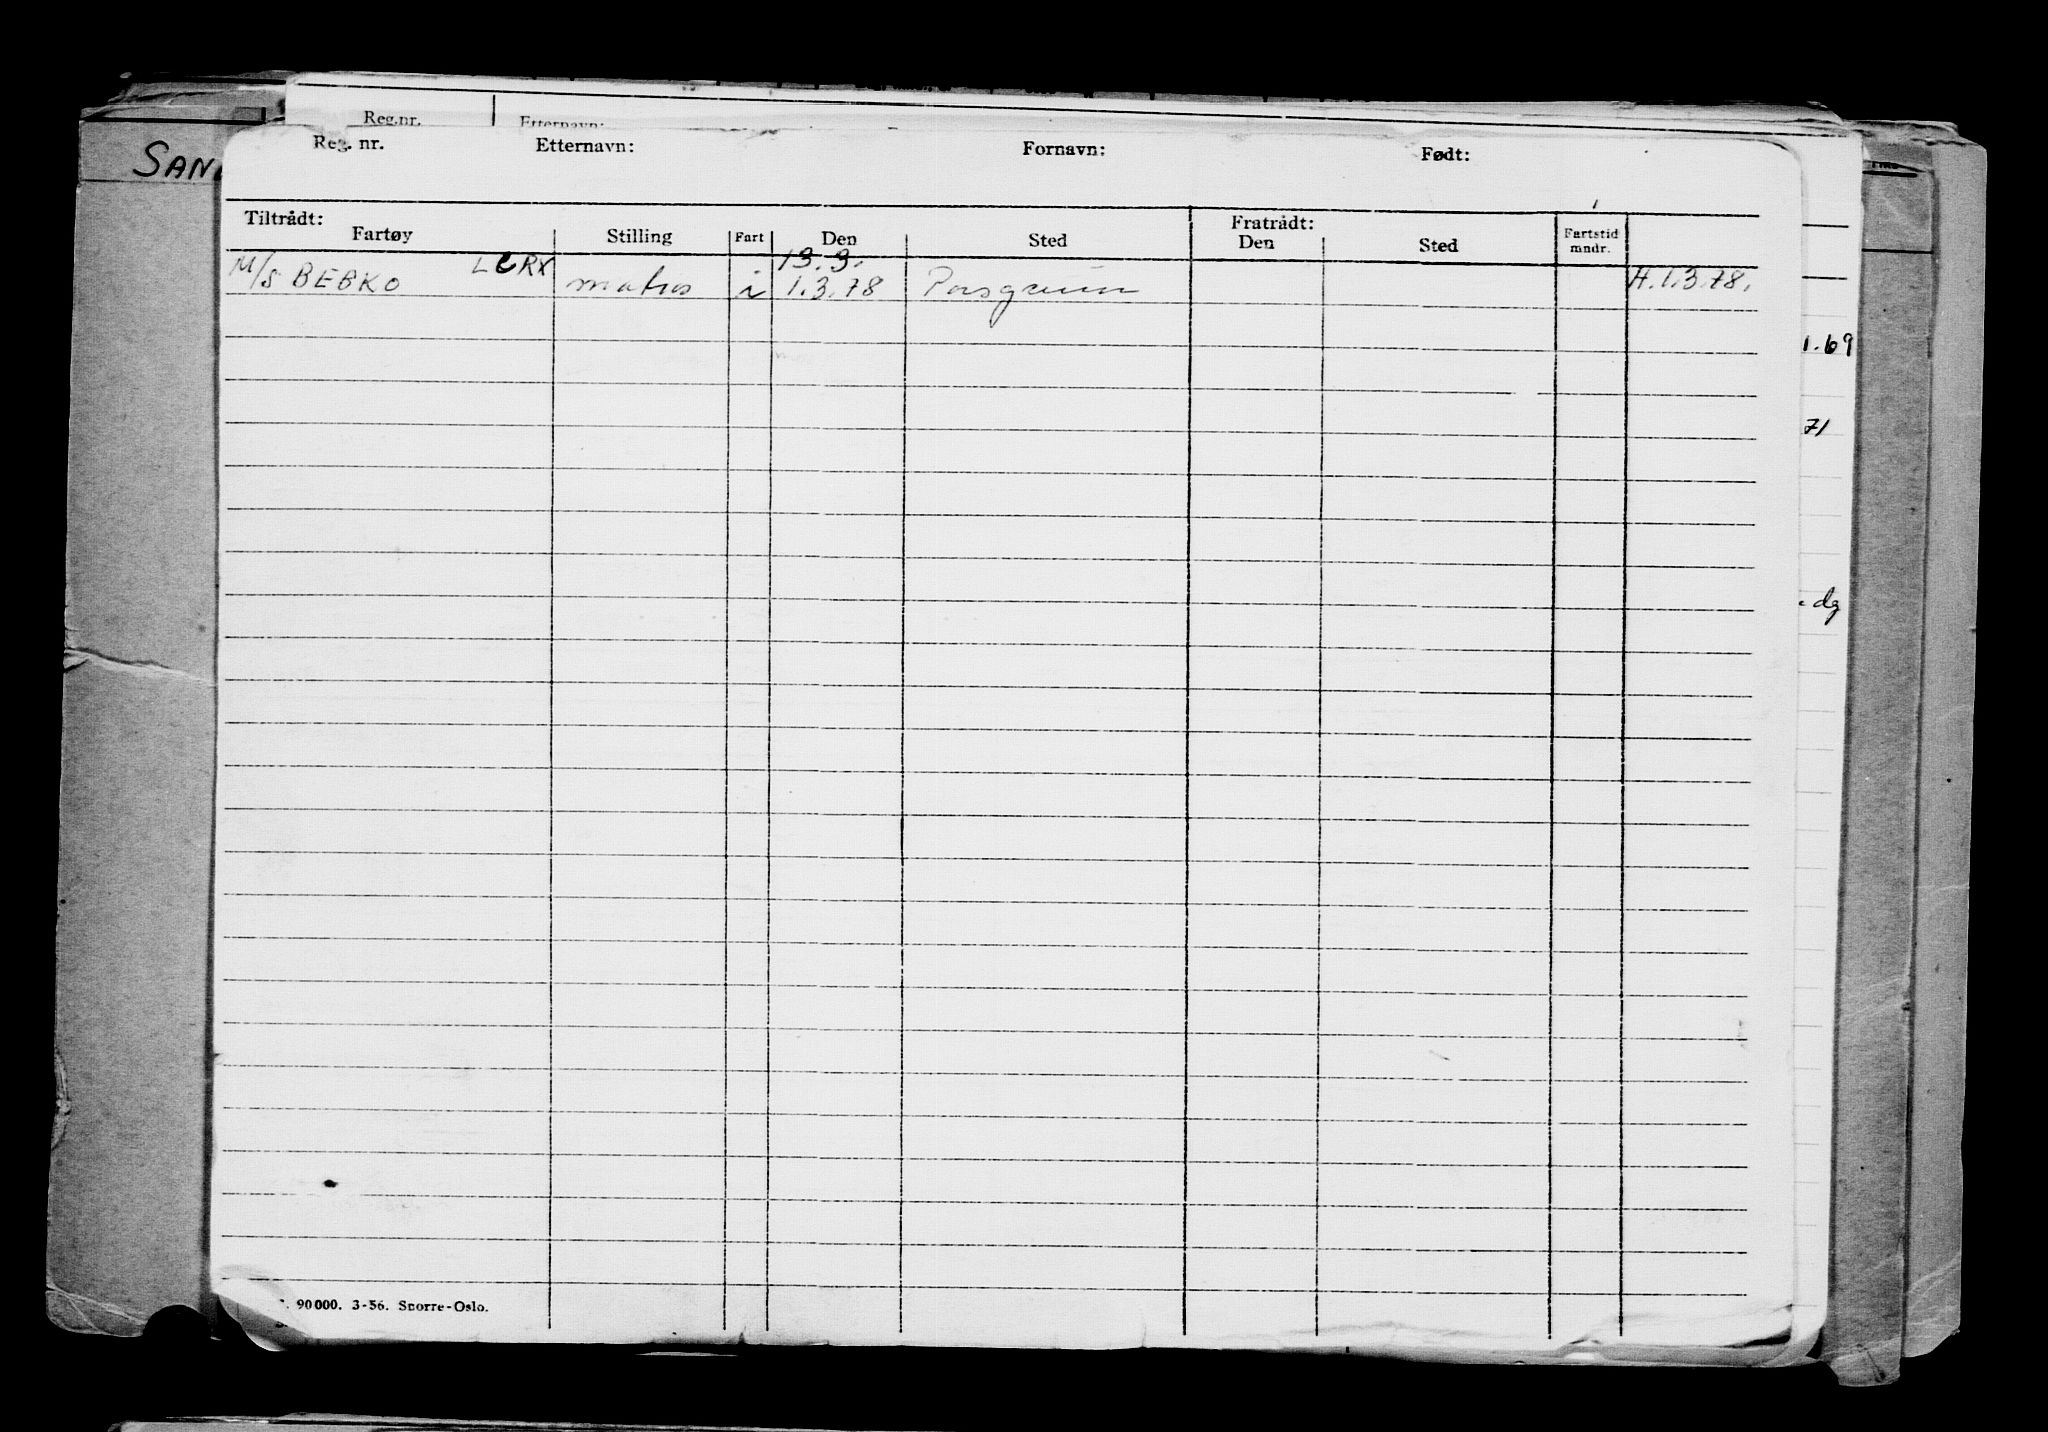 Reg.nr. Etternavn:
SAN
Reg. nr. Etternavn: Fornavn: Født:
Tiltrådt: Fratrådt:
Fartøy Stilling Fart Den Sted Den Sted Fartstid mndr.
13.3.
M/S BEBKO LERX matros i 1.3.78 Porsgrunn H.1.3.78.
1.69
71
dg
90000. 3-56. Snorre-Oslo.